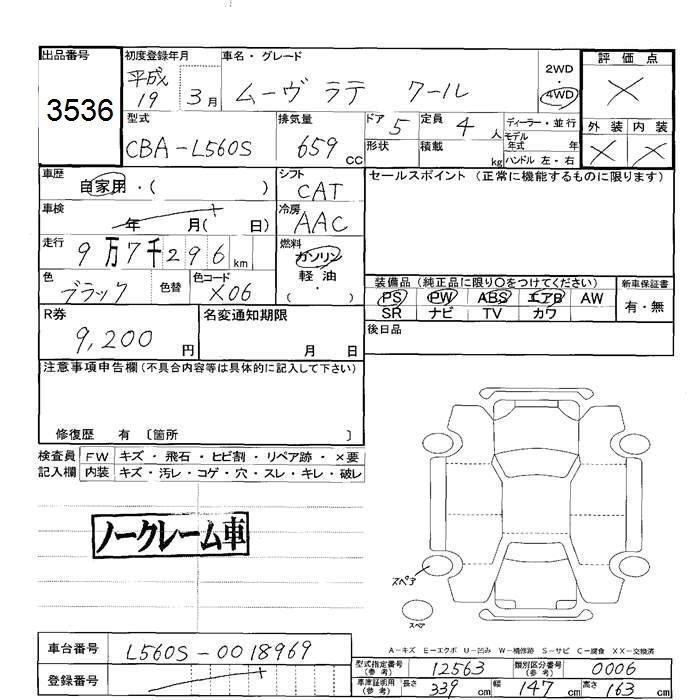 出品番号 初度登録年月 車名・グレード 評価点
3536 平成19 3月 ムーヴ ラテ クール 2WD・4WD
型式 排気量 ドア 定員 ディーラー・並行 外装 内装
CBA-L560S 659cc 5 4人 モデル年式 年
形状 積載 kg ハンドル 左・右
車歴 自家用・( ) シフト CAT セールスポイント (正常に機能するものに限ります)
車検 年 月( 日) 冷房 AAC
走行 9万7千296km 燃料 ガソリン 軽油・( )
色 ブラック 色替 色コード X06
装備品 (純正品に限り○をつけてください) 新車保証書
PS PW ABS エアB AW 有・無
SR ナビ TV カワ
R券 9,200円 名変通知期限 月 日 後日品
注意事項申告欄 (不具合内容等は具体的に記入して下さい)
修復歴 有 〔箇所 〕
検査員 FW キズ・飛石・ヒビ割・リペア跡・×要
記入欄 内装 キズ・汚レ・コゲ・穴・スレ・キレ・破レ
ノークレーム車
スペア
スペア
A-キズ E-エクボ U-凹み W-補修跡 S-サビ C-腐食 XX-交換済
車台番号 L560S-0018969
登録番号
型式指定番号(参考) 12563 類別区分番号(参考) 0006
車庫証明用(参考) 長さ 339cm 幅 147cm 高さ 163cm